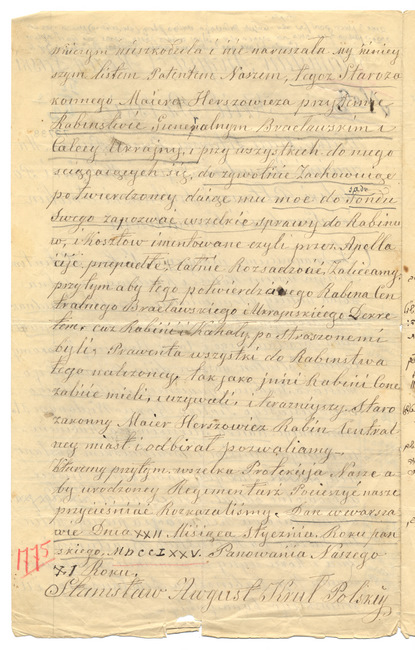 niczym uszkodziła i nie naruszała my niniey
szym listem Patentem Naszem, tegoz Staroza
konnego Maiera Herszowicza przy
Rabinstwie Generalnym Bracławskim i
Całey Ukrainy, i przy wszystkich do niego
sciągaiących się, do zywotnie Zachowuiąc
potwierdzoney daiąc mu moc do sądu
Swego zapozwać wszelkie sprawy do Rabina
w, i Kosztow imentowane czyli przez Apella
cije przypadłe, Całnie Rozsadzone, Zalicamy
przytym aby tego potwierdzonego Rabina Cen
tralnego Bracławskiego i Ukrainskiego Dekre
ta Rabini, i Kahały po
byli. Prawenta wszystki do Rabinstwa
tego nalezoney, tak jako inni Rabini
mieli, uzywali, i teraznieyszy Staro
zakonny Maier Herszowicz Rabin Central
ney miast i odbirał pozwaliamy.
przytym, wszelka Protekcija Nasze a
by urodzoney Regimentarz nasze
przycisniać Rozkazalismy. Dan w warsza
wie Dnia XXII Misiąca Stycznia Roku pan
skiego, MDCCLXXV. Panowania Naszego
Roku.
1775
Stanisław August Krul Polskiy